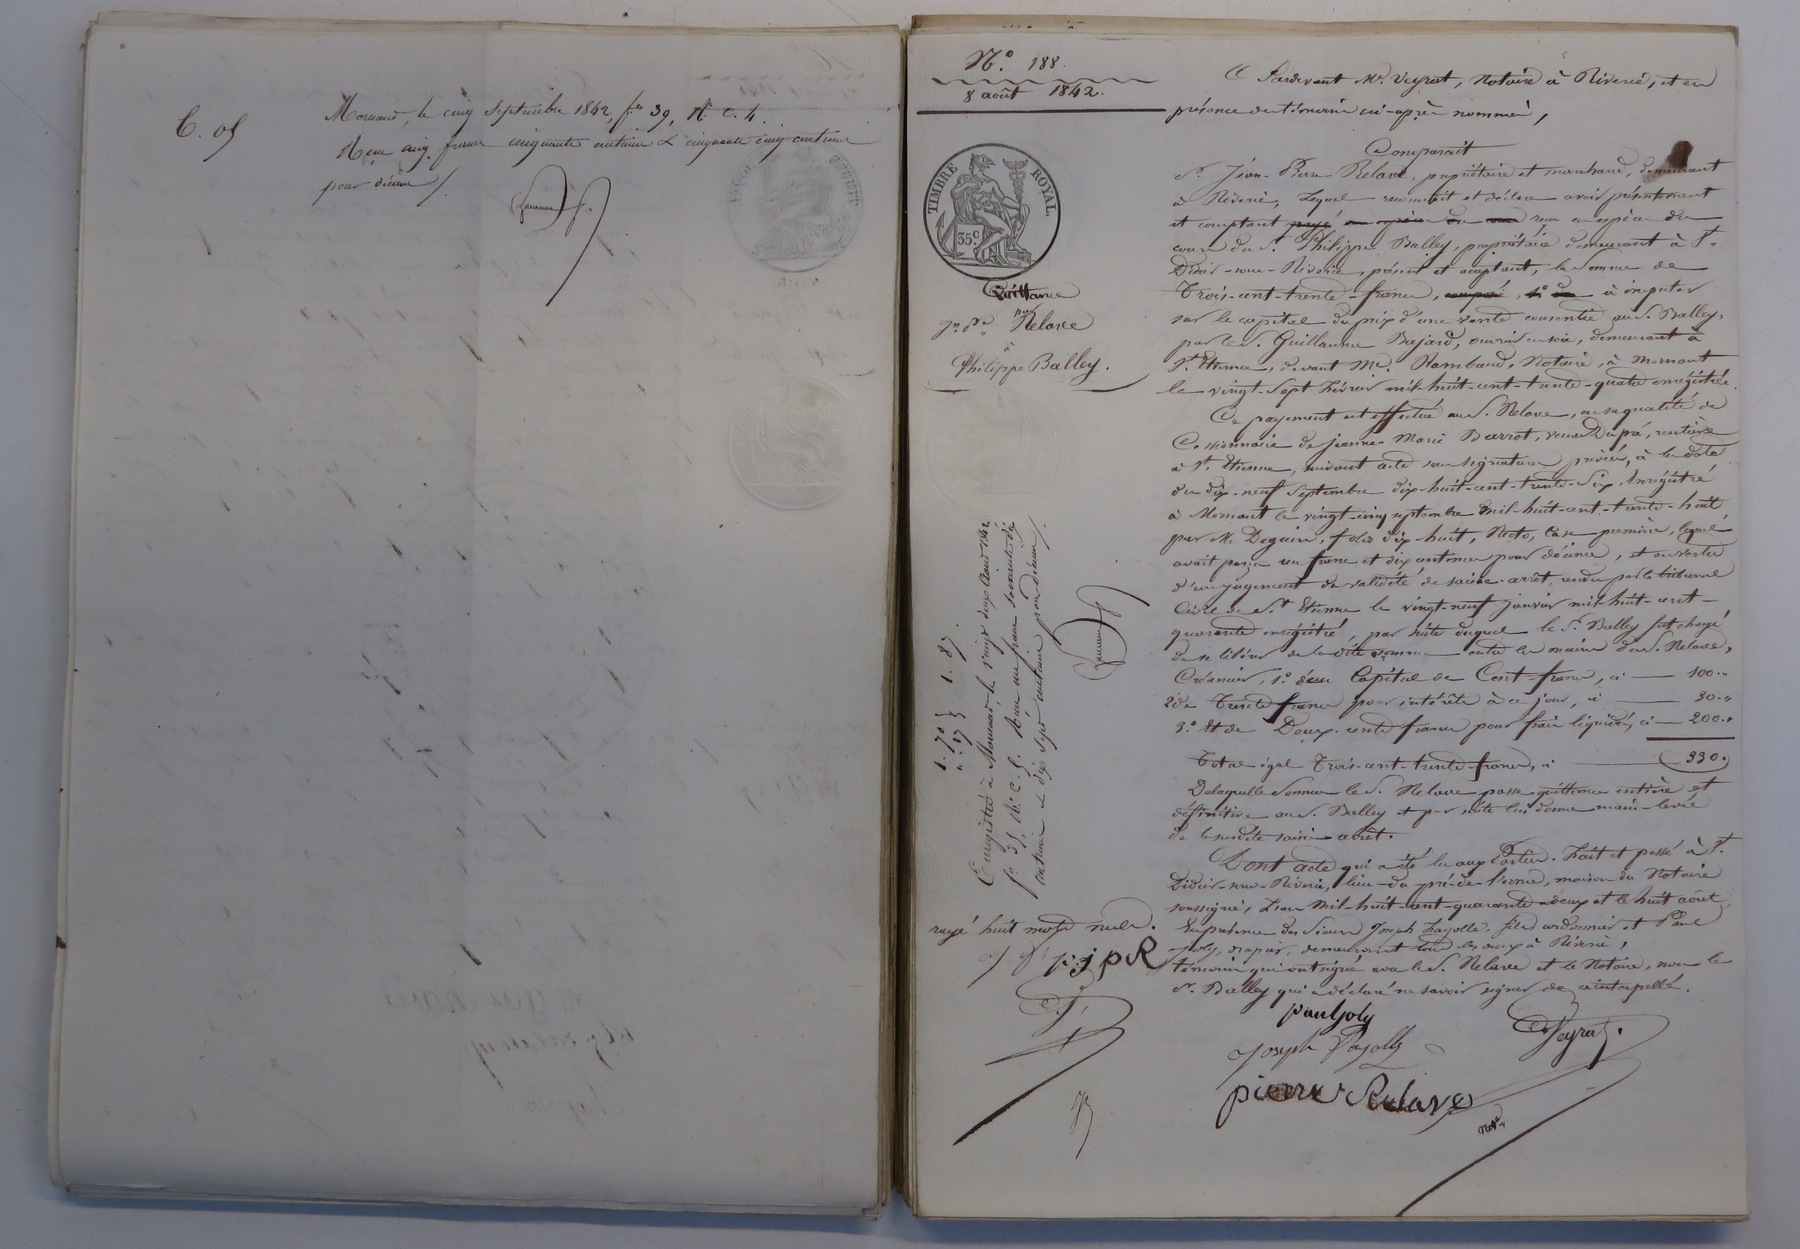 6. 05
Mornant, le cinq Septembre 1842, f° 39, R° C. 4.
Reçu cinq francs cinquante centimes & cinquante cinq centimes
pour décime
N°. 188.
8 août 1842.
TIMBRE ROYAL
35 c.
Quittance
par
Jn. Pre. Relave
à
Philippe Balley.
Pardevant Me. Veyrat, Notaire à Riverie, et en
présence des témoins ci-après nommés,
Comparait
Sr. Jean-Pierre Relave, propriétaire et marchand, demeurant
à Riverie, Lequel reconnait et déclare avoir présentement
et comptant reçu en espèces de
cours du Sr. Philippe Balley, propriétaire demeurant à St.
Didier-sous-Riverie, présent et acceptant, la Somme de
Trois-cent-trente-francs, à imputer
sur le capital du prix d'une vente consentie au S. Balley,
par le S. Guillaume Bajard, ouvrier en soie, demeurant à
St. Etienne, devant Me. Rambaud, Notaire, à Mornant
le vingt-Sept Février mil-huit-cent-trente-quatre enrégistrée.
Ce payement est effectué au S. Relave, en sa qualité de
Cessionnaire de Jeanne-Marie Barrot, veuve Dupré, rentière
à St. Etienne, suivant acte sous signatures privées, à la date
du dix-neuf Septembre dix-huit-cent-trente-Six, Enrégistré
à Mornant le vingt-cinq septembre Mil-huit-cent-trente-huit,
par Me Deguin, folio dix-huit, Recto, Case première, lequel
avait perçu un franc et dix centimes pour décime, et en vertu
d'un jugement de validité de saisie-arrêt, rendu par le tribunal
Civil de St Etienne le vingt-neuf janvier mil-huit-cent-
quarante enrégistré, par suite duquel le S. Balley fut chargé
de se libérer de la dite somme entre les mains du S. Relave,
Créancier, 1°. du Capital de Cent-francs, ci — 100.„
2° de Trente francs pour intérêts à ce jour, ci — 30.„
3°. Et de Deux-cents francs pour frais liquidés, ci — 200.„
Total égal Trois-cent-trente-francs, ci — 330.
Delaquelle Somme le S. Relave passe quittance entière et
définitive au S. Balley et par suite lui donne main-levée
de la susdite saisie-arrêt.
Dont acte qui a été lu aux Parties. Fait et passé à St.
Didier-sous-Riverie, lieu du pré-de-l'orme, maison du Notaire
soussigné, L'an Mil-huit-cent-quarante-deux et le huit août,
En présence des Sieurs Joseph Fayolle, fils, cordonnier et Paul
Joly, drapier, demeurant tous les deux à Riverie,
témoins qui ont signé avec le S. Relave et le Notaire, non le
S. Balley qui a déclaré ne savoir signer de ce interpellé.
Enregistré à Mornant, le vingt deux Août 1842,
f° 35, R° C. 5. Reçu un franc soixante dix
centimes & dix sept centimes pour décime
1. 70 } 1. 87.
„. 17 }
rayé huit mots nuls.
J. F. P. J p R
paul joly
Joseph Fayolle
Veyrat
pierre Relave
Nore